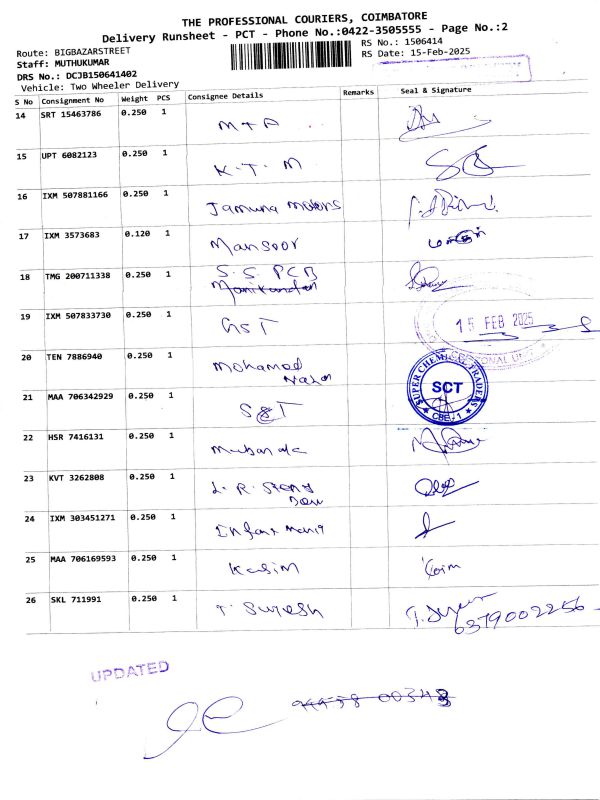 THE PROFESSIONAL COURIERS, COIMBATORE
Delivery Runsheet - PCT - Phone No.:0422-3505555 - Page No.:2
Route: BIGBAZARSTREET
RS No.: 1506414
Staff: MUTHUKUMAR
RS Date: 15-Feb-2025
DRS No.: DCJB150641402
Vehicle: Two Wheeler Delivery
S No Consignment No Weight PCS Consignee Details Remarks Seal & Signature
14 SRT 15463786 0.250 1 M+A
15 UPT 6082123 0.250 1 K.T.M
16 IXM 507881166 0.250 1 Jamuna motors
17 IXM 3573683 0.120 1 Mansoor
18 TMG 200711338 0.250 1 S.S. PCB
Manikandan
19 IXM 507833730 0.250 1 GST
15 FEB 2025
20 TEN 7886940 0.250 1 Mohamad
21 MAA 706342929 0.250 1 S&T
SUPER CHEMICAL TRADERS
SCT
CBE-1
22 HSR 7416131 0.250 1 Mubarak
23 KVT 3262808 0.250 1 L.R.
24 IXM 303451271 0.250 1 Infant
25 MAA 706169593 0.250 1 Kasim
26 SKL 711991 0.250 1 T. Suresh
6379002256
UPDATED